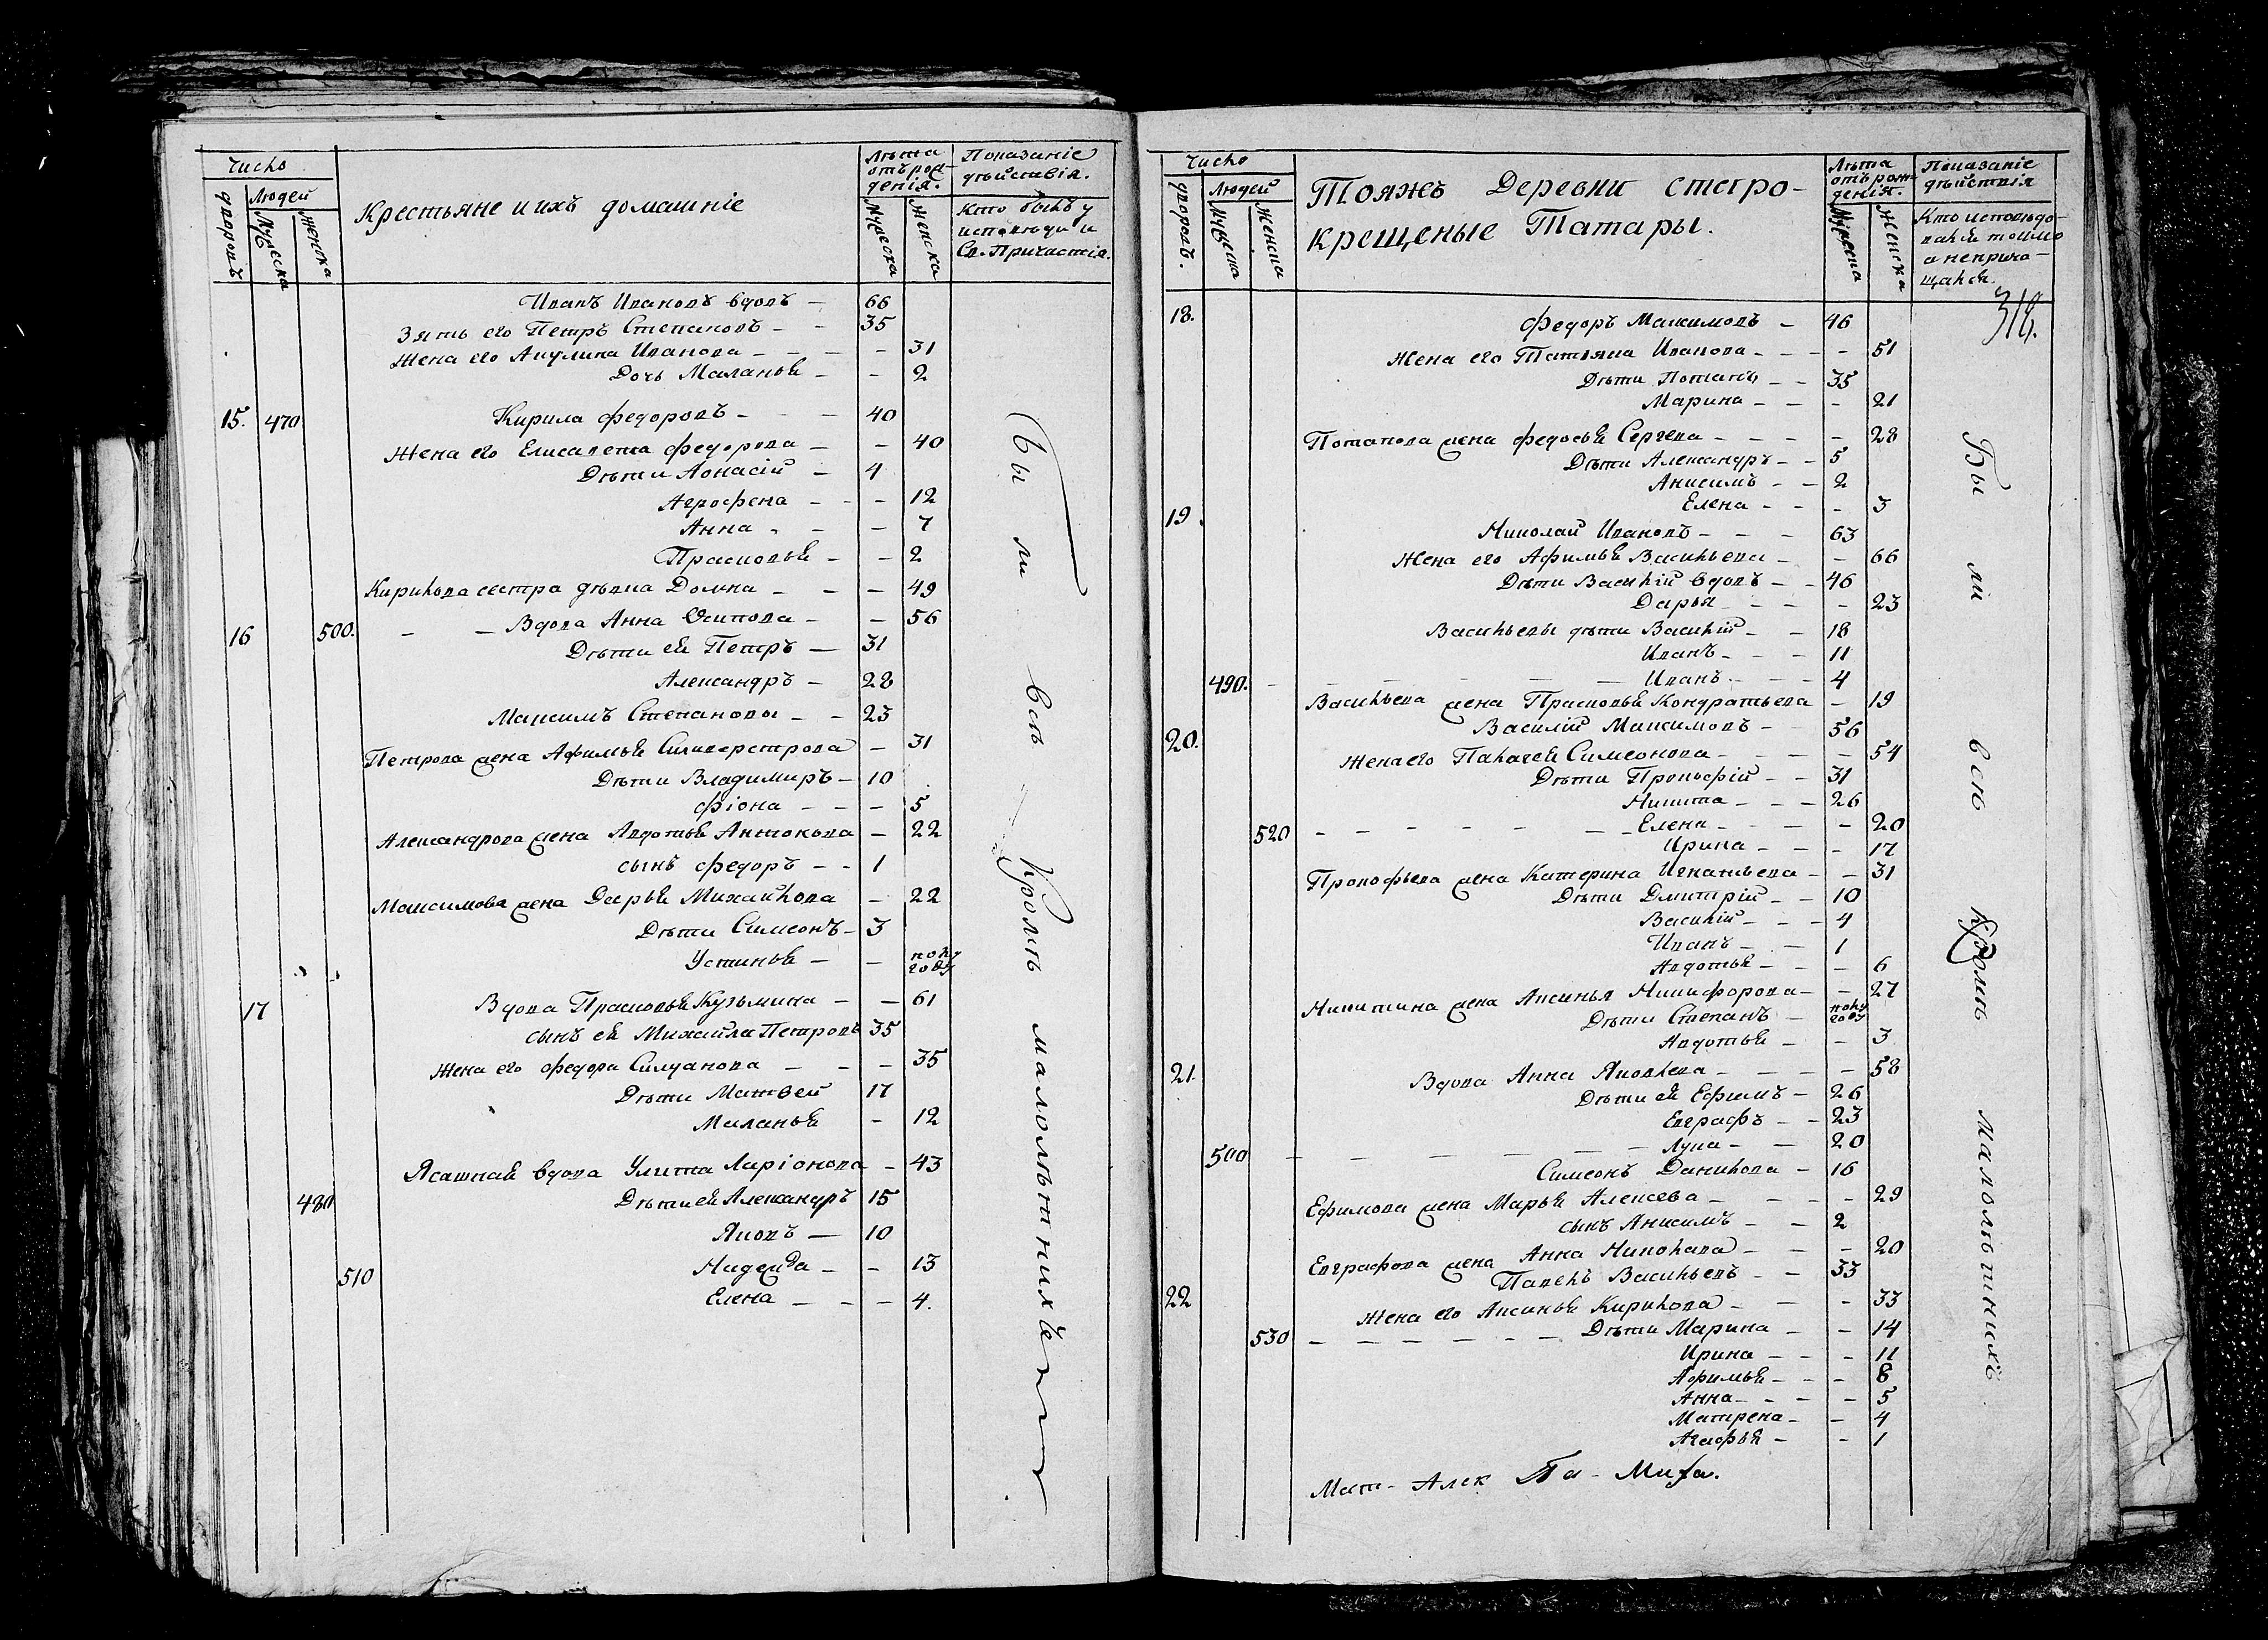 Число
Людей
дворовъ
Мужеска
Женска
Крестьяне и ихъ домашніе
Лѣта
отъ рож-
денія.
Мужеска
Женска
Показаніе
дѣйствія.
Кто былъ у
исповѣди и
Св. Причастія.
Иванъ Ивановъ вдовъ — 66
Зять его Петръ Степановъ — — 35
Жена его Акулина Иванова — — — — 31
Дочь Маланья — — 2
15. 470 Кирила Федоровъ — — — 40
Жена его Елисавета Федорова — — 40
Дѣти Афонасій — 4
Агрофена — — — 12
Анна — — — 7
Прасковья — — 2
Кирилова сестра дѣвка Домна — — — 49
16 500. — — Вдова Анна Осипова — — 56
Дѣти ея Петръ — 31
Александръ — 28
Максимъ Степановы — — 23
Петрова жена Афимья Силиверстрова — 31
Дѣти Владимиръ — 10
Фіона — — — 5
Александрова жена Авдотья Антонова — 22
сынъ Федоръ — — 1
Максимова жена Дарья Михайлова — 22
Дѣти Симеонъ — 3
Устинья — — полу
году
17 Вдова Прасковья Кузьмина — — 61
сынъ ея Михайла Петровъ 35
Жена его Федора Силуанова — — — 35
Дѣти Матвей 17
Миланья — 12
Ясашная вдова Улита Ларіонова — 43
480 Дѣти ея Александръ 15
Яковъ — 10
510 Надежда — — 13
Елена — — — 4.
Были всѣ Кромѣ малолѣтнихъ
Число
Людей
дворовъ.
Мужеска
Женска
Тояжъ Деревни старо-
крещеные Татары.
Лѣта
отъ рож-
денія.
Мужеска
Женска
Показаніе
дѣйствія
Кто исповѣдо-
вался токмо
а неприча-
щался.
318.
18. Федоръ Максимовъ — 46
Жена его Татьяна Иванова — — — — 51
Дѣти Потапъ — — 35
Марина — — — 21
Потапова жена Федосья Сергеева — — — — 28
Дѣти Александръ — — 5
Анисимъ — — 2
Елена — — — 3
19. Николай Ивановъ — — — 63
Жена его Афимья Васильева — — 66
Дѣти Василій вдовъ — — 46
Дарья — — — 23
Васильевы дѣти Василій — — 18
Иванъ — — — 11
490. — — — — — — Иванъ — — — 4
Васильева жена Прасковья Кондратьева — 19
20. Василій Максимовъ — 56
Жена его Палагея Симеонова — — — — 54
Дѣти Прокофій — — 31
Никита — — — 26
520 — — — — — — — Елена — — — — 20
Ирина — — — 17
Прокофьева жена Катерина Игнатьева — — 31
Дѣти Дмитрій — — 10
Василій — — — 4
Иванъ — — 1
Авдотья — — — 6
Никитина жена Аксинья Никифорова — — 27
Дѣти Степанъ — полу
году
Авдотья — — 3
21. Вдова Анна Яковлева — — — — 58
Дѣти ея Ефимъ — 26
Евграфъ — — 23
500 — — — — — — — Лука — — 20
Симеонъ Данилова — 16
Ефимова жена Марья Алексева — — — — 29
сынъ Анисимъ — — 2
Евграфова жена Анна Николаева — — — 20
22 Павелъ Васильевъ — — 33
Жена его Аксинья Кирилова — — — 33
530 — — — — — — — Дѣти Марина — — 14
Ирина — — — 11
Афимья — — — 8
Анна — — — — 5
Матрена — — 4
Агафья — — 1
Были всѣ Кромѣ малолѣтнихъ